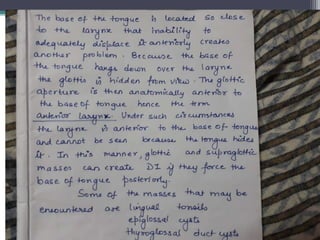 The base of the tongue is located so close
to the larynx that inability to
adequately displace it anteriorly creates
another problem. Because the base of
the tongue hangs down over the larynx
the glottis is hidden from view. The glottic
aperture is then anatomically anterior to
the base of tongue hence the term
anterior larynx. Under such circumstances
the larynx is anterior to the base of tongue
and cannot be seen because the tongue hides
it. In this manner, glottic and supraglottic
masses can create DI if they force the
base of tongue posteriorly.
Some of the masses that may be
encountered are lingual tonsils
epiglossal cysts
thyroglossal duct cysts